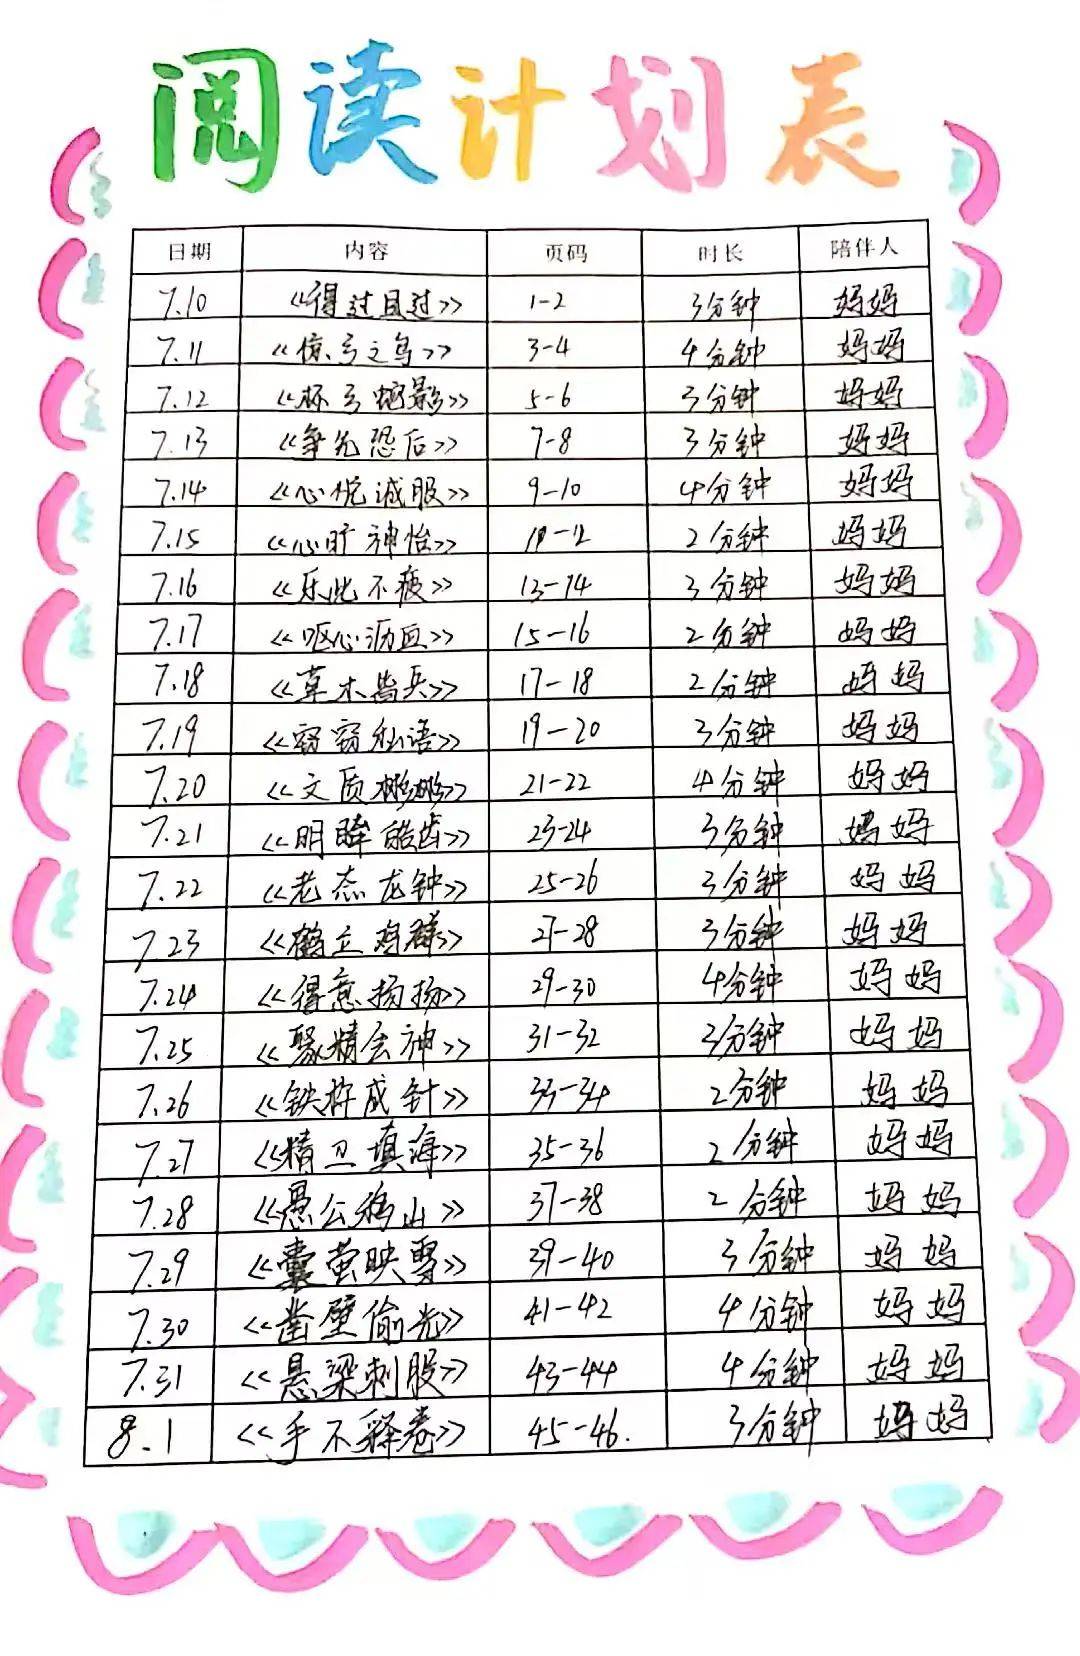 阅读计划表
日期 内容 页码 时长 陪伴人
7.10 《得过且过》 1-2 3分钟 妈妈
7.11 《惊弓之鸟》 3-4 4分钟 妈妈
7.12 《杯弓蛇影》 5-6 3分钟 妈妈
7.13 《争先恐后》 7-8 3分钟 妈妈
7.14 《心悦诚服》 9-10 4分钟 妈妈
7.15 《心旷神怡》 11-12 2分钟 妈妈
7.16 《乐此不疲》 13-14 3分钟 妈妈
7.17 《呕心沥血》 15-16 2分钟 妈妈
7.18 《草木皆兵》 17-18 2分钟 妈妈
7.19 《窃窃私语》 19-20 3分钟 妈妈
7.20 《文质彬彬》 21-22 4分钟 妈妈
7.21 《明眸皓齿》 23-24 3分钟 妈妈
7.22 《老态龙钟》 25-26 3分钟 妈妈
7.23 《鹤立鸡群》 27-28 3分钟 妈妈
7.24 《得意扬扬》 29-30 4分钟 妈妈
7.25 《聚精会神》 31-32 3分钟 妈妈
7.26 《铁杵成针》 33-34 2分钟 妈妈
7.27 《精卫填海》 35-36 2分钟 妈妈
7.28 《愚公移山》 37-38 2分钟 妈妈
7.29 《囊萤映雪》 39-40 3分钟 妈妈
7.30 《凿壁偷光》 41-42 4分钟 妈妈
7.31 《悬梁刺股》 43-44 4分钟 妈妈
8.1 《手不释卷》 45-46. 3分钟 妈妈